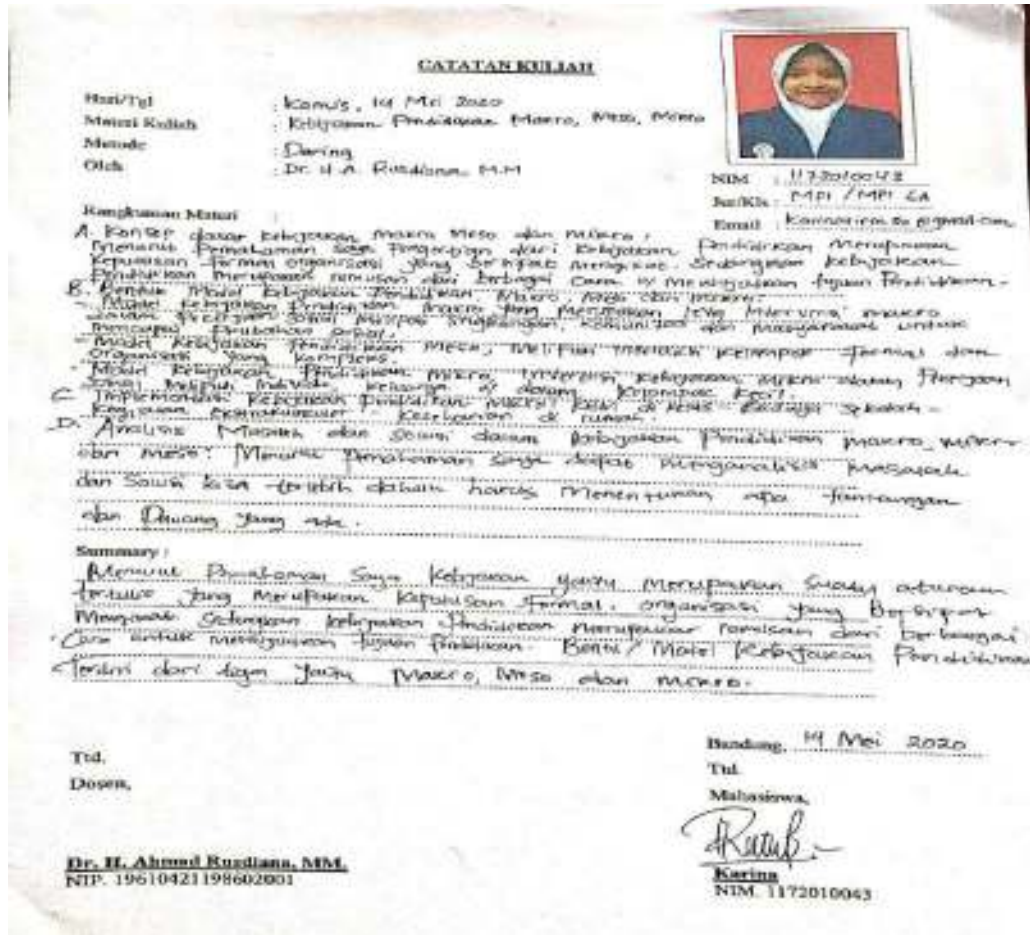 CATATAN KULIAH
Hari/Tgl : Kamis, 14 Mei 2020
Materi Kuliah : Kebijakan Pendidikan Makro, Meso, Mikro
Metode : Daring
Oleh : Dr. H. A. Rusdiana, M.M
NIM : 1172010043
Jur/Kls : MPI / MPI 6A
Email :
Rangkuman Materi :
A. Konsep dasar Kebijakan makro Meso dan Mikro :
Menurut Pemahaman saya Pengertian dari Kebijakan Pendidikan Merupakan
Keputusan formal organisasi yang bersifat mengikat. Sedangkan kebijakan
Pendidikan merupakan rumusan dari berbagai Cara u/ Mewujudkan tujuan Pendidikan.
B. Bentuk Model Kebijakan Pendidikan, Makro, Meso dan mikro.
- Model Kebijakan Pendidikan makro yang makro
dalam sosial lingkungan, komunitas dan masyarakat untuk
mencapai Perubahan
- Model Kebijakan Pendidikan Meso, Meliputi kelompok formal dan
Organisasi yang kompleks.
- Model Kebijakan Pendidikan mikro, Intervensi kebijakan mikro dalam Pekerjaan
sosial meliputi Individu, keluarga dalam kelompok kecil.
C. Implementasi Kebijakan Pendidikan di kelas - Budaya Sekolah -
Kegiatan ekstrakurikuler - di rumah.
D. Analisis Masalah dan Solusi dalam Kebijakan Pendidikan makro, mikro
dan Meso : Menurut Pemahaman saya dapat menganalisis Masalah
dan Solusi kita terlebih dahulu harus Menentukan apa tantangan
dan Peluang yang ada.
Summary :
Menurut Pemahaman Saya Kebijakan yaitu merupakan Suatu aturan
tertulis yang Merupakan Keputusan formal. organisasi yang Bersifat
Mengikat Sedangkan kebijakan Pendidikan Merupakan rumusan dari berbagai
Cara untuk mewujudkan tujuan Pendidikan. Bentuk/Model Kebijakan Pendidikan
Terdiri dari tiga yaitu Makro, Meso dan mikro.
Bandung, 14 Mei 2020
Ttd. Ttd.
Dosen, Mahasiswa,
Dr. H. Ahmad Rusdiana, MM. Karina
NIP. 196104211986021001 NIM. 1172010043